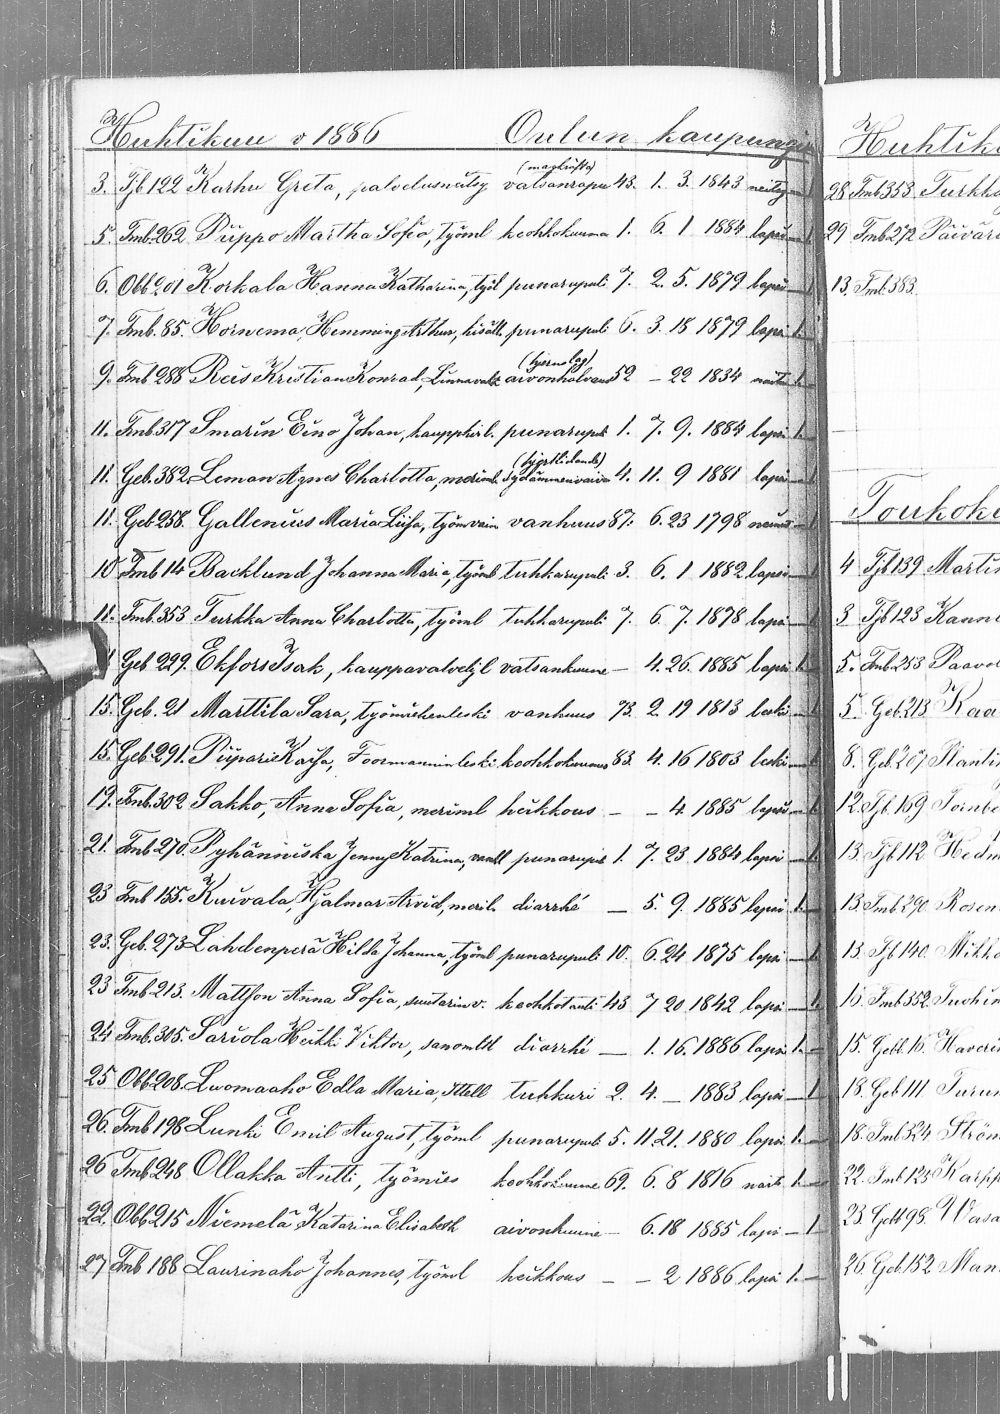 Huhtikuu v 1886 Oulun kaupungin
3. Tjb 122 Karhu Greta, palvelusneitsy vatsansapu 43. 1. 3. 1843 neitsy — 1
5. Tmb. 262 Piippo Martha Sofia, työml keohkokuume 1. 6. 1 1884 lapsi — 1
6. Obb 201 Korkala Hanna Katharina, työl punarupuli 7. 2. 5. 1879 lapsi — 1
7. Tmb. 85. Hornema, Hemming Arthur, punarupuli 6. 3. 18 1879 lapsi 1. —
(hjernslag)
9. Tmb 288 Reis Kristian Konrad, aivonhalvaus 52 – 22 1834 1. —
11. Tmb 317 Smarin Eino Johan, punarupuli 1. 7. 9. 1884 lapsi 1. —
(hjertlidande)
11. Geb. 382 Leman Agnes Charlotta, meriml sydämmenvaiva 4. 11. 9 1881 lapsi — 1
11. Geb 258. Gallenius Maria Liisa, vanhuus 87. 6. 23 1798 — 1
10 Tmb 14 Backlund Johanna Maria, työml tuhkarupuli 3. 6. 1 1882 lapsi — 1
11. Tmb. 353 Turkka Anna Charlotta, työml tuhkarupuli 7. 6. 7. 1878 lapsi — 1
Geb 229. Ekfors Isak, vatsankuume — 4. 26. 1885 lapsi 1. —
15. Geb. 21 Marttila Sara, työmiehenleski vanhuus 73. 2. 19 1813 leski — 1
15. Geb 291. Piipari Kaisa, Foormanninleski keohkokuume 83. 4. 16 1803 leski — 1
19. Tmb. 302. Sakko, Anna Sofia, meriml heikkous – – 4. 1885 lapsi — 1.
21. Tmb 270. Pyhänniska Jenny Katrina, punarupuli 1. 7. 23. 1884 lapsi — 1.
23 Tmb 155. Kuivala, Hjalmar Arvid, meril. diarrhé — 5. 9. 1885 lapsi 1. —
23. Geb. 273 Lahdenperä Hilda Johanna, työml punarupuli 10. 6. 24 1875 lapsi — 1
23 Tmb 213. Mattson Anna Sofia, suutarin v. keohkotauti 43 7 20 1842 lapsi — 1.
24 Tmb. 305. Sariola Heikki Viktor, diarrhé — 1. 16. 1886 lapsi 1. —
25 Obb 208. Luomaaho Edla Maria, Ittell tuhkuri 2. 4. – 1883 lapsi — 1
26. Tmb 198 Lunki Emil August, työml punarupuli 5. 11. 21. 1880 lapsi 1. —
26 Tmb 248 Ollakka Antti, työmies keohkokuume 69. 6. 8 1816 1. —
22. Obb 215 Niemelä Katarina Elisabeth aivonkuume – 6. 18 1885 lapsi — 1
27 Tmb 188 Laurinaho Johannes, työml heikkous – – 2 1886 lapsi 1. —
28 Tmb 353. Turkka
29 Tmb 272 Päivär
13. Tmb 383.
Toukoku
4 Tjb 139 Martin
3 Tjb 123 Kann
5. Tmb. 253 Paavo
5. Geb. 213 Kaa
8. Geb. 207
12. Tjb 169 Tornb
13. Tjb 112 Hedm
13. Tmb 290 Rosen
13 Tjb 140. Mikk
Tmb 352.
15. Gebb. 16. Haveri
18. Geb 111. Turu
18. Tmb 324 Ström
22. Tmb 123 Karpp
23. Gebb 95. Wasa
26. Geb 152 Man